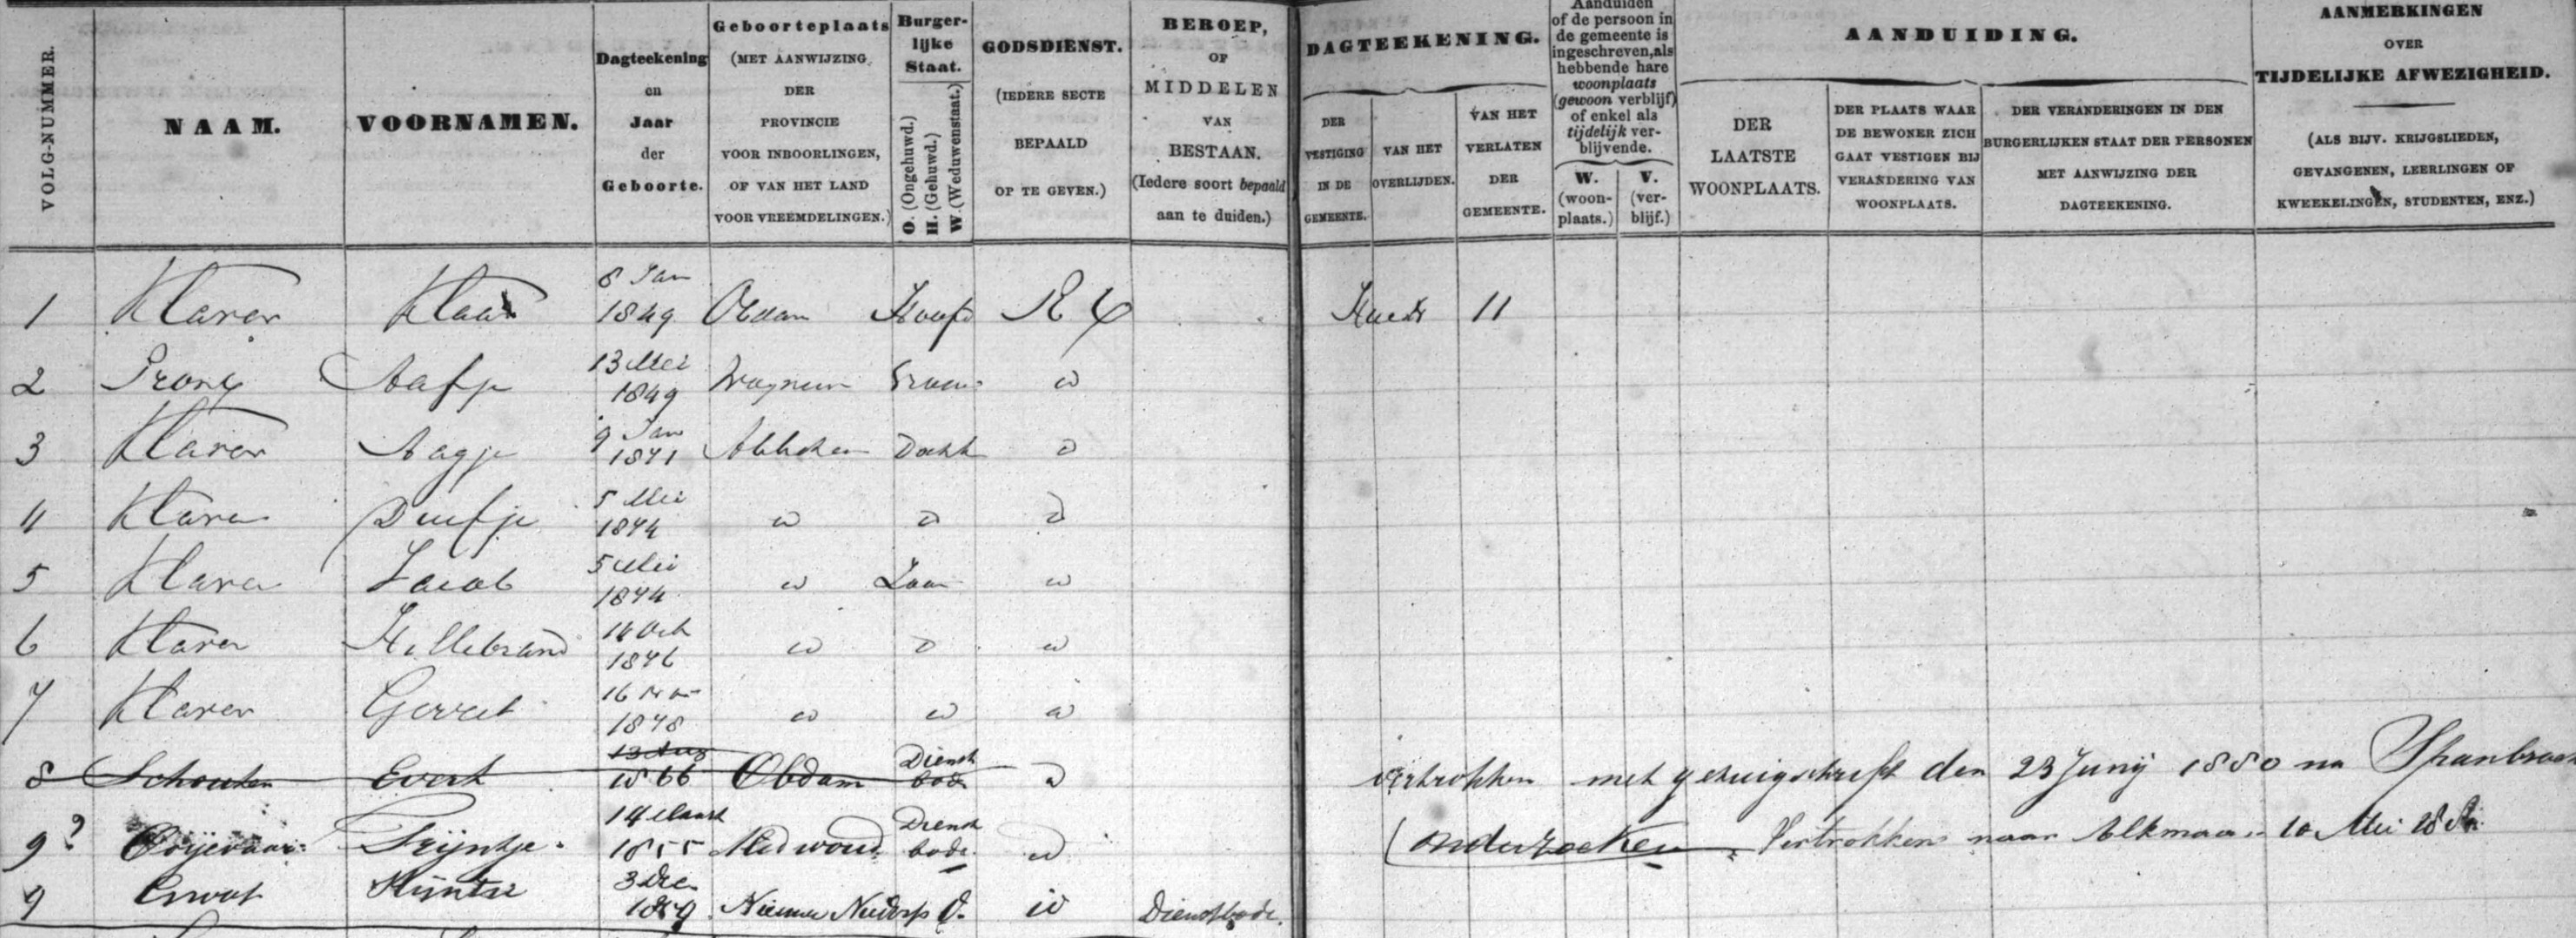 VOLG-NUMMER.
NAAM.
VOORNAMEN.
Dagteekening
en
Jaar
der
Geboorte.
Geboorteplaats
(MET AANWIJZING
DER
PROVINCIE
VOOR INBOORLINGEN,
OF VAN HET LAND
VOOR VREEMDELINGEN.)
Burger-
lijke
Staat.
O. (Ongehuwd.)
H. (Gehuwd.)
W. (Weduwenstaat.)
GODSDIENST.
(IEDERE SECTE
BEPAALD
OP TE GEVEN.)
BEROEP,
OF
MIDDELEN
VAN
BESTAAN.
(Iedere soort bepaald
aan te duiden.)
DAGTEEKENING.
DER
VESTIGING
IN DE
GEMEENTE.
VAN HET
OVERLIJDEN.
VAN HET
VERLATEN
DER
GEMEENTE.
Aanduiden
of de persoon in
de gemeente is
ingeschreven, als
hebbende hare
woonplaats
(gewoon verblijf)
of enkel als
tijdelijk ver-
blijvende.
W.
(woon-
plaats.)
V.
(ver-
blijf.)
AANDUIDING.
DER
LAATSTE
WOONPLAATS.
DER PLAATS WAAR
DE BEWONER ZICH
GAAT VESTIGEN BIJ
VERANDERING VAN
WOONPLAATS.
DER VERANDERINGEN IN DEN
BURGERLIJKEN STAAT DER PERSONEN
MET AANWIJZING DER
DAGTEEKENING.
AANMERKINGEN
OVER
TIJDELIJKE AFWEZIGHEID.
(ALS BIJV. KRIJGSLIEDEN,
GEVANGENEN, LEERLINGEN OF
KWEEKELINGEN, STUDENTEN, ENZ.)
1 Klaver Klaas 8 Jan 1849 Obdam Hoofd RC 11
2 Aafje 13 Mei 1849 Vrouw
3 Klaver Aagje 9 Jan 1871 Docht
4 Klaver Duifje 5 Mei 1874
5 Klaver Jacob 5 Mei 1874 Zoon
6 Klaver Hillebrand 14 Oct 1876
7 Klaver Gerret 16 Nov 1878
8 Schouten Evert 13 Aug 1866 Obdam Dienst bode vertrokken met getuigschrift den 23 Junij 1880 na Spanbroek
9? Trijntje 14 Maart 1855 Medwoud Dienst bode onderzoeken Vertrokken naar Alkmaar 10 Mei
9 3 Dec 1859 Nieuwe Niedorp O. Dienstbode.